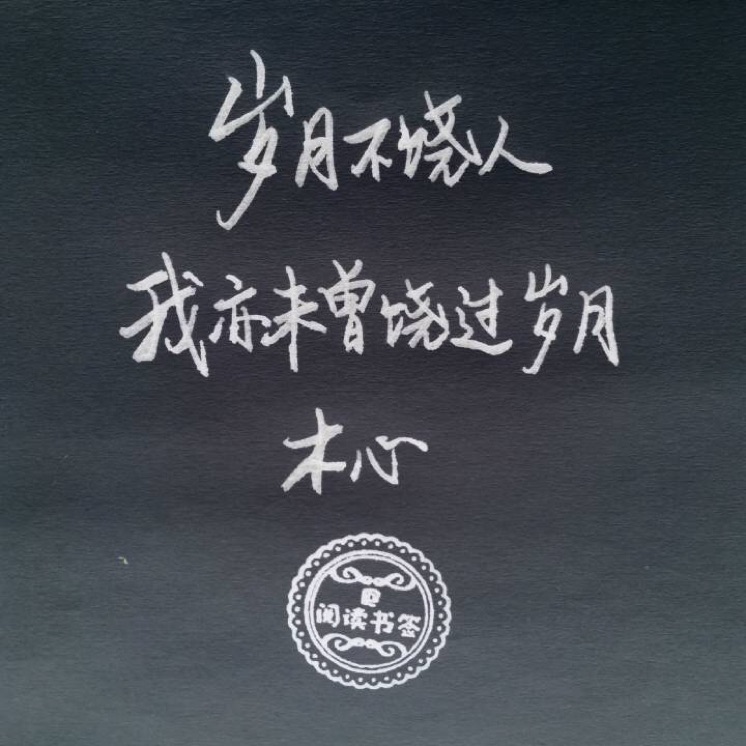 岁月不饶人
我亦未曾饶过岁月
木心
阅读书签